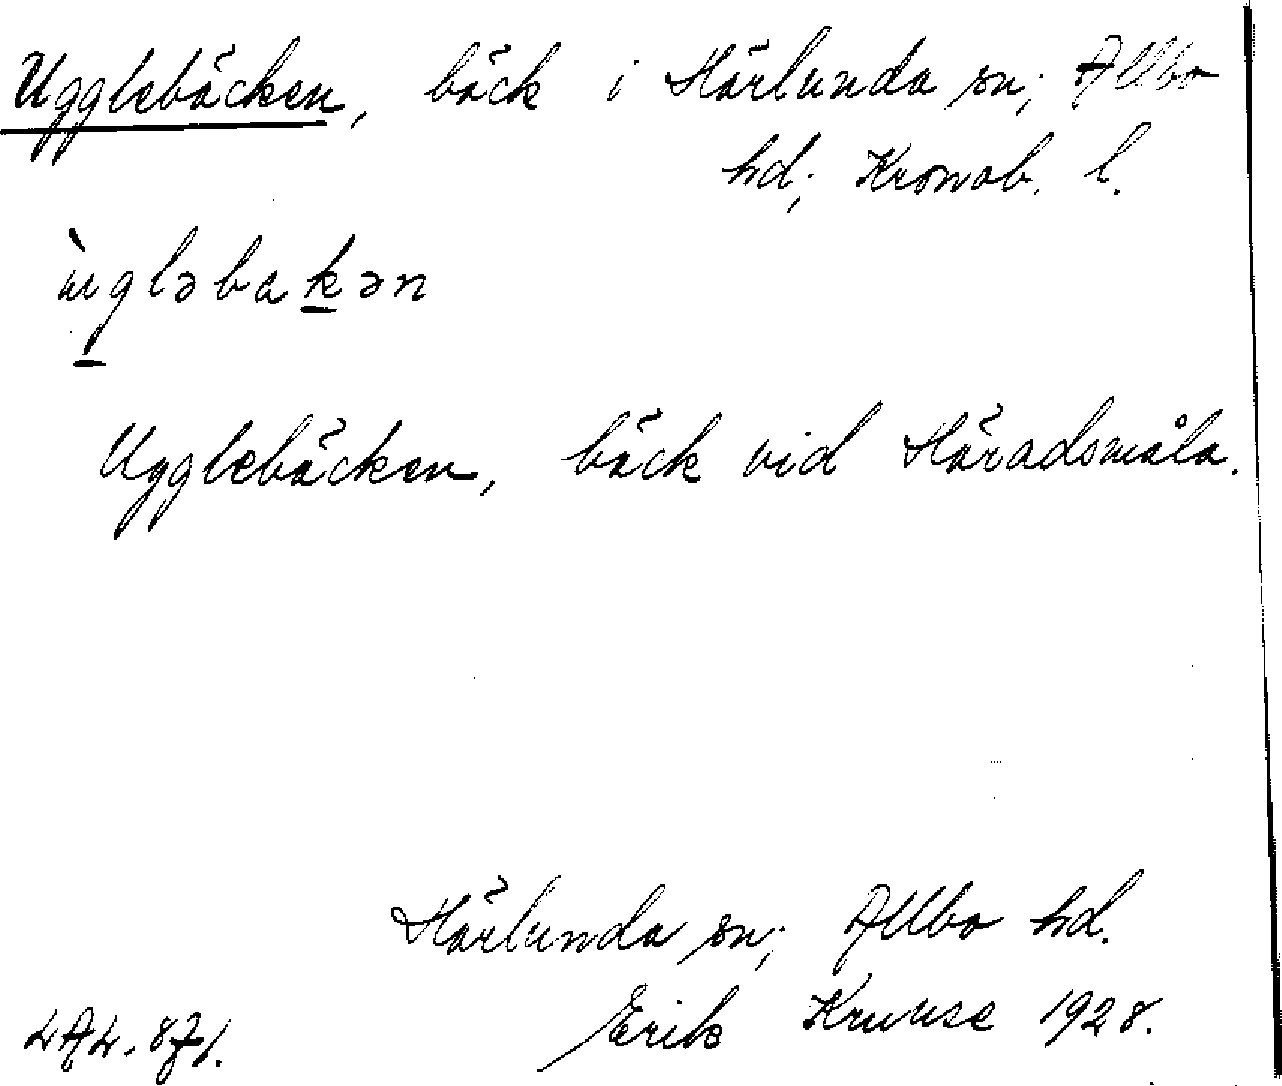 Ugglebäcken, bäck i Härlunda sn; Allbo
hd; Kronob. l.
ùgləbakən
Ugglebäcken, bäck vid Häradsmåla.
Härlunda sn; Allbo hd.
Erik Kruuse 1928.
LAL. 871.